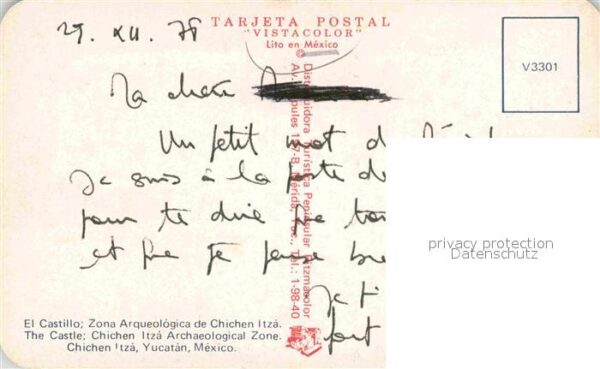 29. XII. 78
TARJETA POSTAL
"VISTACOLOR"
Lito en México
V3301
Ma chère
Un petit mot de
Je suis à la poste de
pour te dire que tou
et que je pense bie
Je t'
fort
Distribuidora Turística Peninsular Fitzmacolor
Mérida, Yuc., Tel.: 1-98-40
privacy protection
Datenschutz
El Castillo; Zona Arqueológica de Chichen Itzá.
The Castle; Chichen Itzá Archaeological Zone.
Chichen Itzá, Yucatán, México.